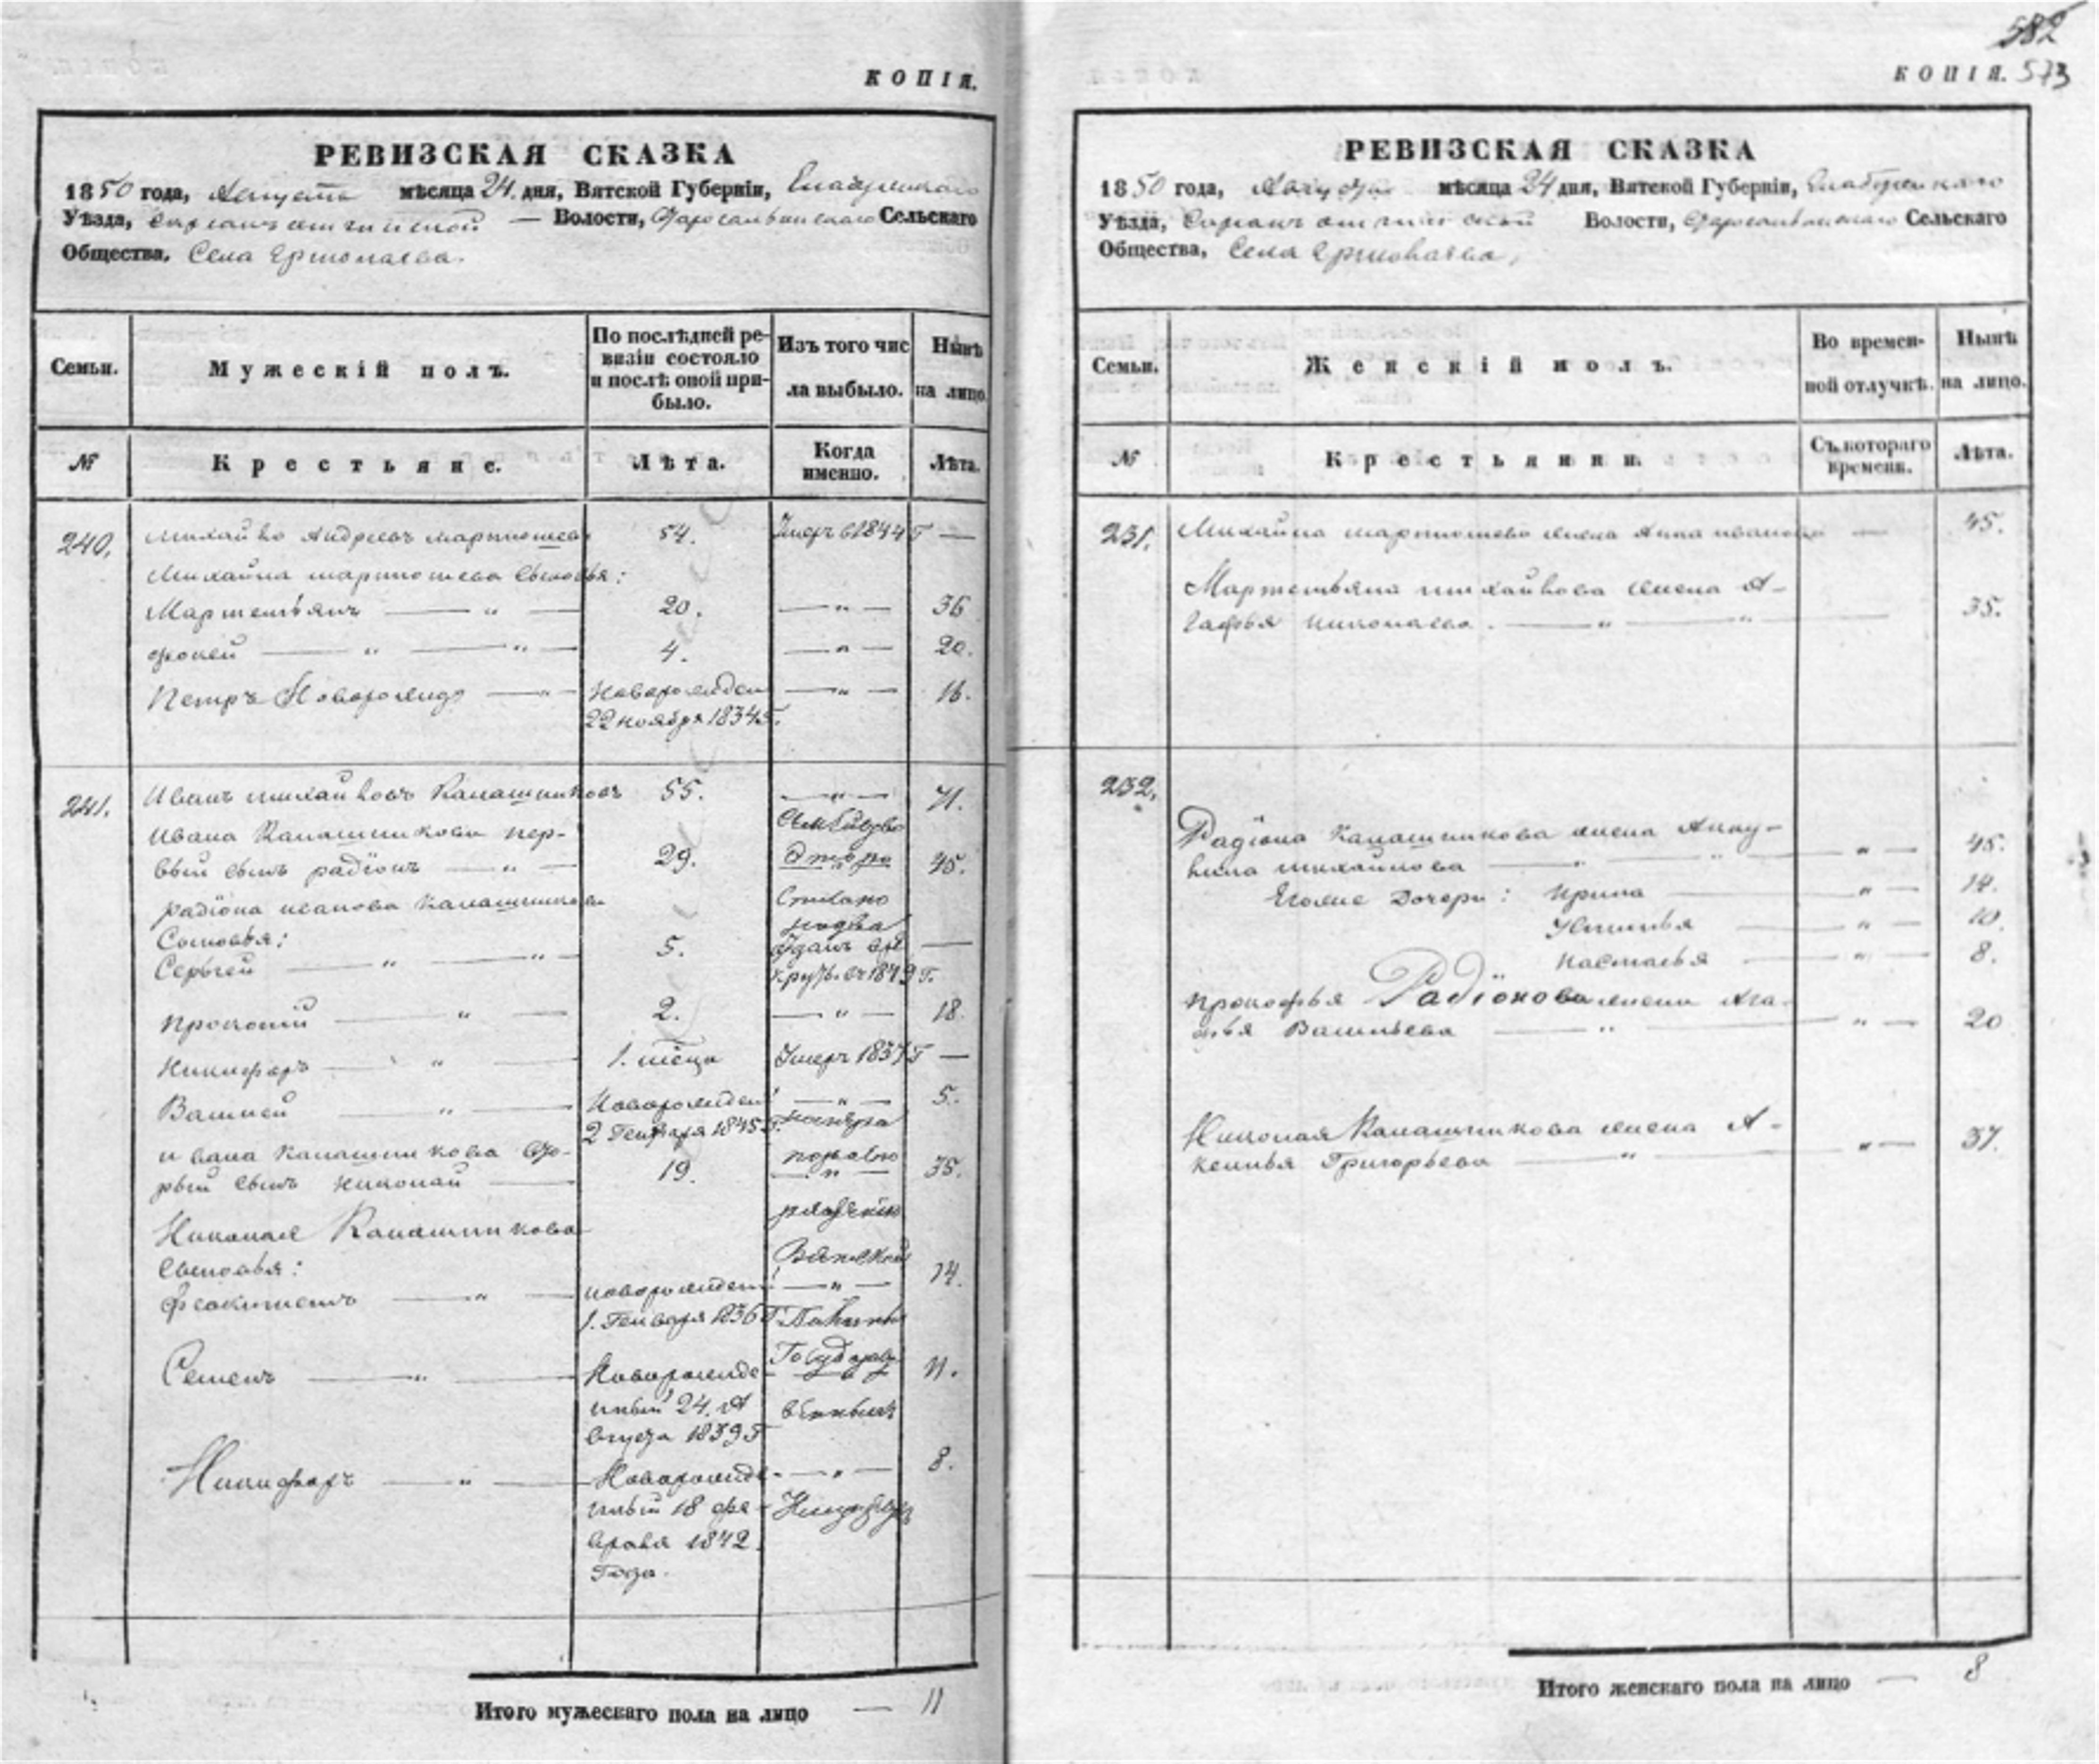 КОПІЯ.
РЕВИЗСКАЯ СКАЗКА
1850 года, Августа мѣсяца 24 дня, Вятской Губерніи, Елабужскаго
Уѣзда, — Волости, Сельскаго
Общества, Села
Семьи.
Мужескій полъ.
По послѣдней ре-
визіи состояло
и послѣ оной при-
было.
Изъ того чис
ла выбыло.
Нынѣ
на лицо.
№
Крестьяне.
Лѣта.
Когда
именно.
Лѣта.
240. Михайло Андреевъ 54. Умеръ 1844 Г —
Михайла сыновья:
Мартемьянъ — „ — 20. — „ — 36
Фокей — „ — „ — 4. — „ — 20.
Петръ Новорожд — „ — Новорожден — „ — 16.
22 ноября 1834 Г.
241. Иванъ Михайловъ Калашниковъ 55. — „ — 71.
Ивана Калашникова пер-
вый сынъ радіонъ — „ — 29. 45.
радіона иванова Калашникова
Сыновья:
Сергей — „ — „ — 5. —
1849 Г.
Прокопий — „ — 2. — „ — 18.
Никифоръ — „ — 1. Умеръ 1837 Г —
Василей — „ — Новорожден — „ — 5.
2 Генваря 1845
ивана Калашникова вто-
рый сынъ Николай — 19. — „ — 35.
Николая Калашникова
Сыновья:
Феоктистъ — „ — новорожден — „ — 14.
1. Генваря 1836 Г
Семенъ — „ — Новорожде 11.
нный 24. А
вгуста 1839 Г
Никифоръ — „ — Новорожде — „ — 8.
нный 18 фе
враля 1842
Года.
Итого мужескаго пола на лицо — 11
582
КОПІЯ. 573
РЕВИЗСКАЯ СКАЗКА
1850 года, Августа мѣсяца 24 дня, Вятской Губерніи, Елабужскаго
Уѣзда, Волости, Сельскаго
Общества, Села
Семьи.
Женскій полъ.
Во времен-
ной отлучкѣ.
Нынѣ
на лицо.
№
Крестьянки.
Съ котораго
времени.
Лѣта.
231. Михайла жена Анна иванова — 45.
Мартемьяна михайлова жена А-
гафья николаева. — „ — „ — 35.
232.
Радіона Калашникова жена Аку-
лина михайлова — „ — „ — 45.
Егоже дочери: Ирина — „ — 14.
Устинья — „ — 10.
настасья — „ — 8.
прокофья Радіонова жена Ага-
фья Васильева — „ — „ — 20
Николая Калашникова жена А-
ксинья Григорьева — „ — „ — 37.
Итого женскаго пола на лицо — 8